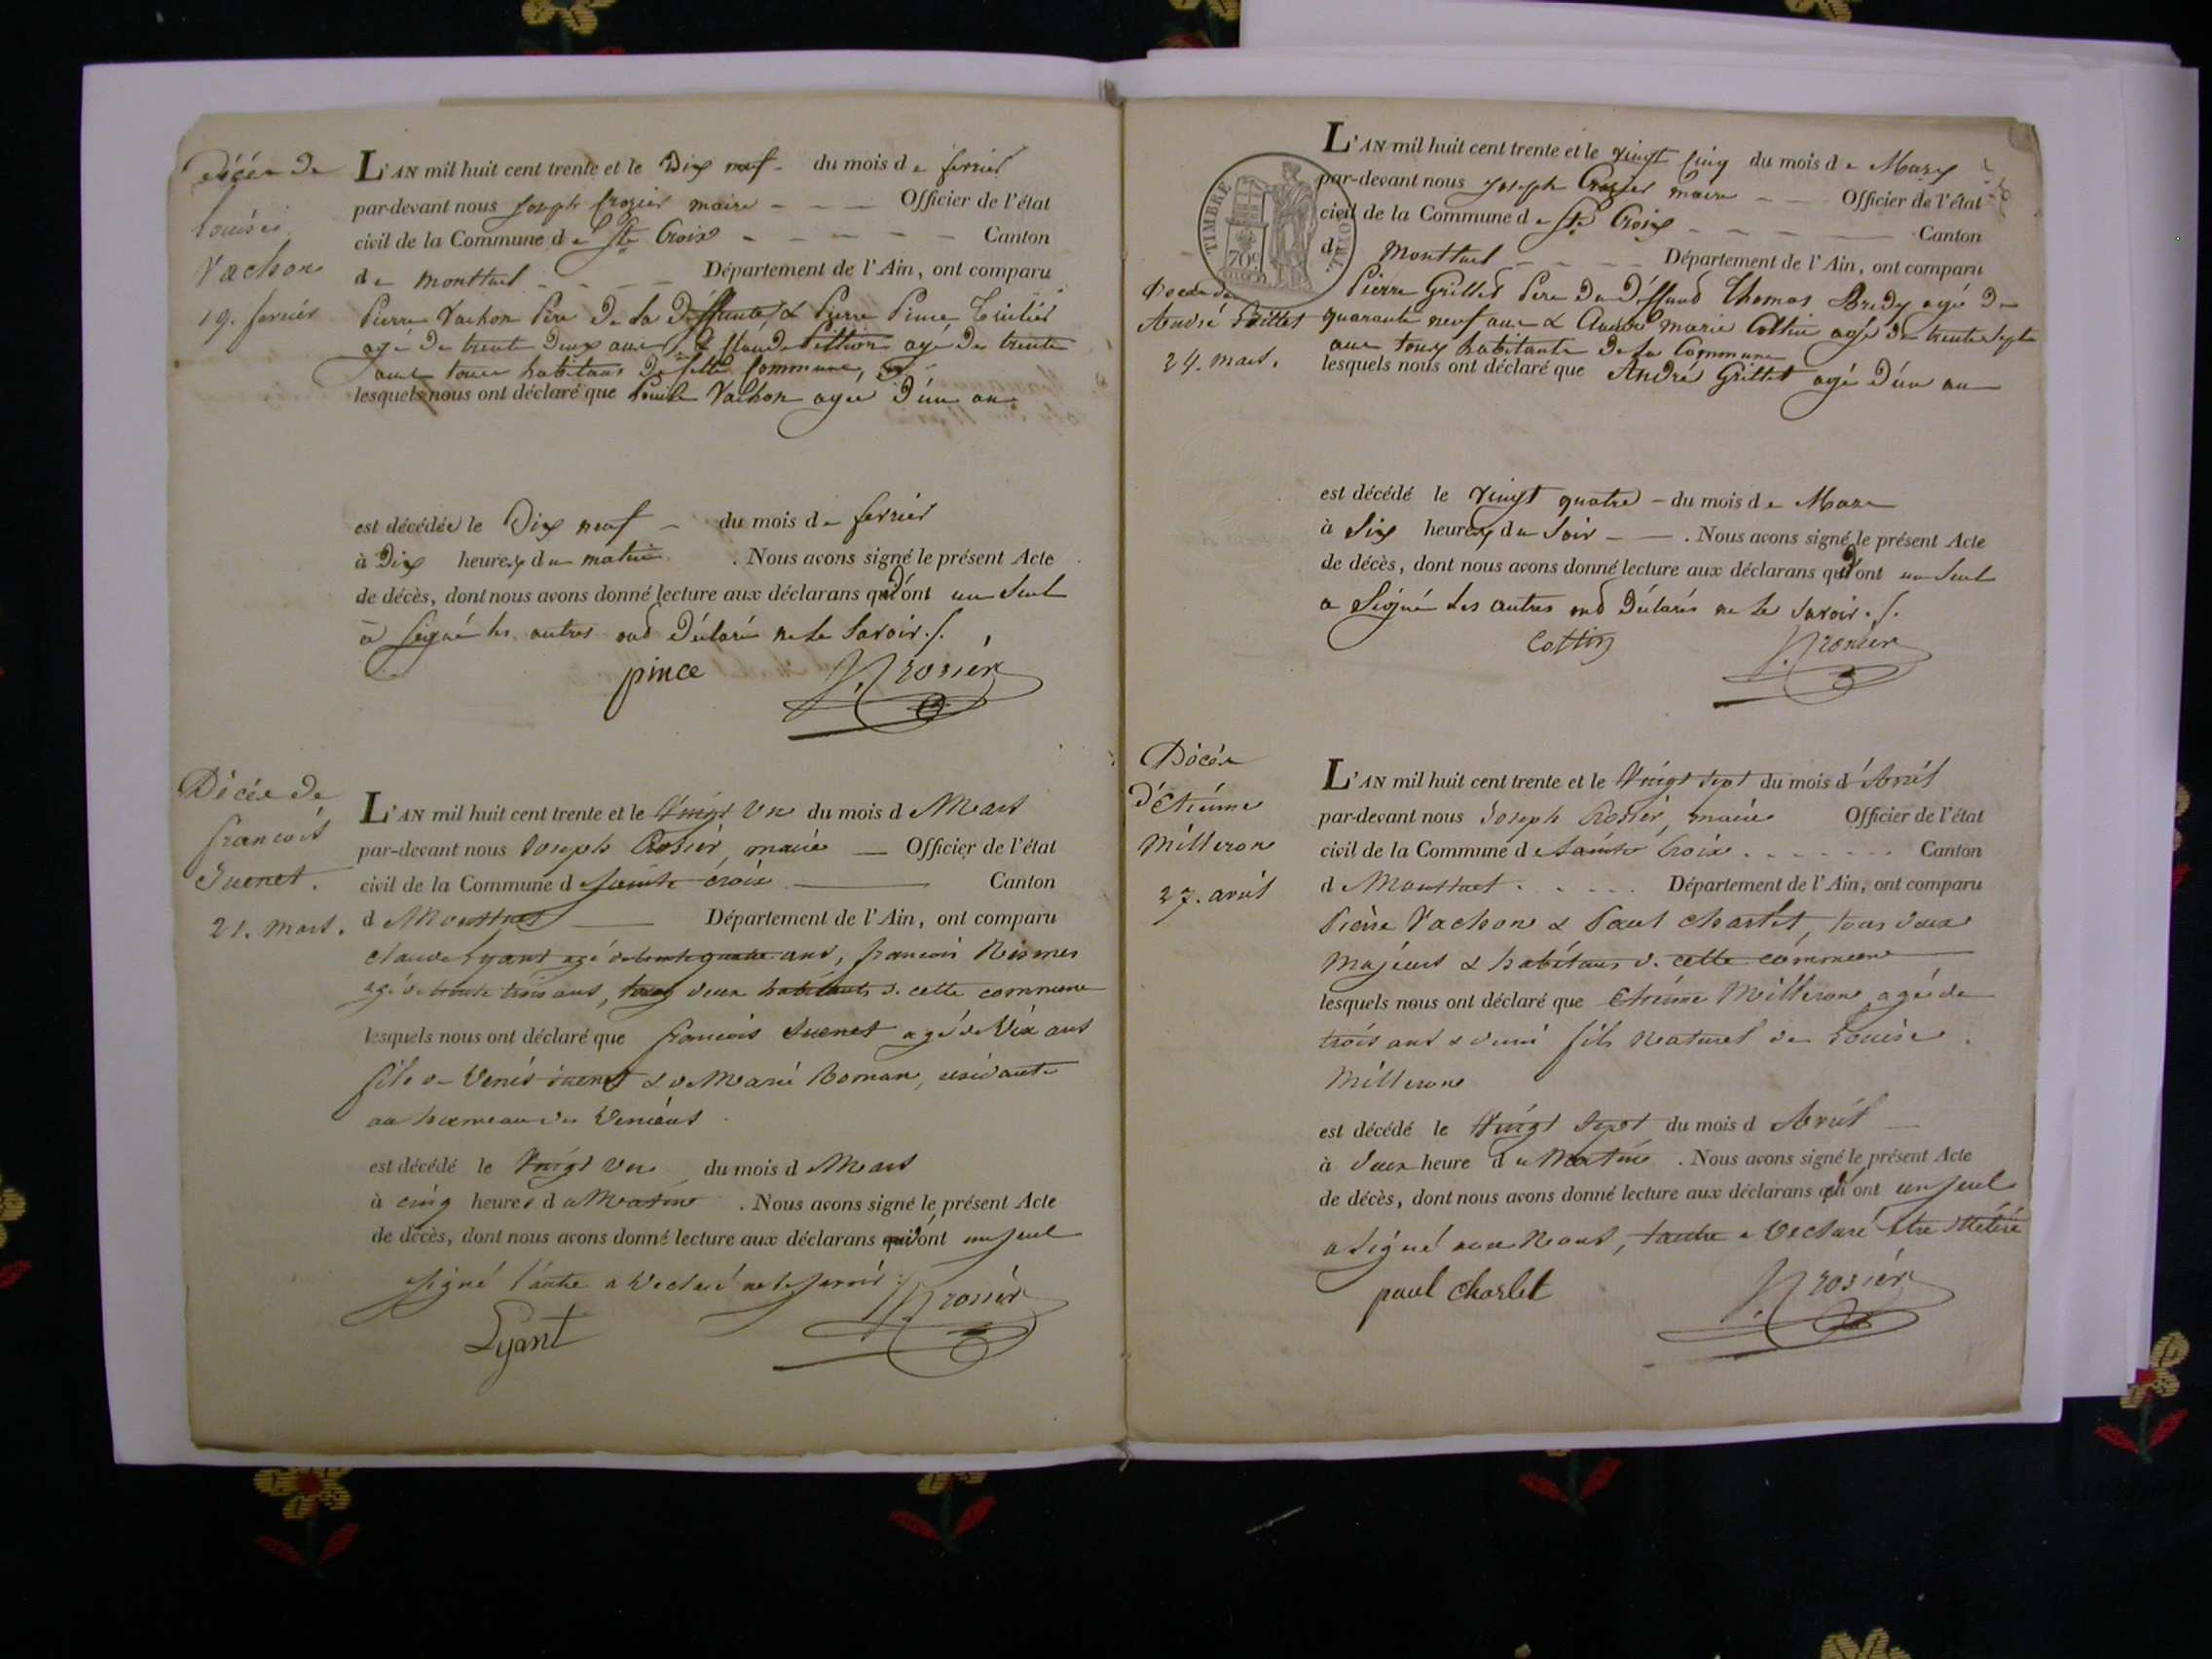 Décés de
Louise
Vachon
19. fevrier
L'AN mil huit cent trente et le Dix neuf - du mois de fevrier
par-devant nous Joseph Crozier maire - - - Officier de l'état
civil de la Commune de Ste Croix - - - - - Canton
de Montluel - - - - Département de l'Ain, ont comparu
Pierre Vachon Père De la Deffunte, & Pierre Pince
agé De trente Deux ans, & Claude agé de trente
ans tous habitans De cette Commune,
lesquels nous ont déclaré que Louise Vachon agée D'un an
est décédée le Dix neuf - du mois de fevrier
à Dix heures du matin . Nous avons signé le présent Acte
de décès, dont nous avons donné lecture aux déclarans qui d'ont un Seul
a signé les autres ont Déclaré ne le Savoir ./.
pince J. Crosier
Décés de
francois
Juenet.
21. Mars.
L'AN mil huit cent trente et le Vingt un du mois d Mars
par-devant nous Joseph Crosier, maire — Officier de l'état
civil de la Commune d Sainte Croix ——— Canton
d Montluel —— Département de l'Ain, ont comparu
Claude Lyant agé de trente quatre ans, francois Nesmes
agé de trente trois ans, tous deux habitants de cette commune
lesquels nous ont déclaré que francois Juenet agé de dix ans
fils de denis Juenet & de Marie Roman, residants
au hameau des
est décédé le Vingt un du mois d Mars
à cinq heures du Matin . Nous avons signé le présent Acte
de décès, dont nous avons donné lecture aux déclarans qui d'ont un seul
signé l'autre a declaré ne le savoir ./.
Lyant J. Crosier
TIMBRE ROYAL
70c
Décés de
André Grillet
24. mars.
L'AN mil huit cent trente et le vingt cinq du mois de Mars
par-devant nous Joseph Crozier maire - - Officier de l'état
civil de la Commune de Ste Croix - - - - Canton
de Montluel - - - - Département de l'Ain, ont comparu
Pierre Grillet Pere Du Déffunt Thomas Bredy agé De
quarante neuf ans & André marie Cottin agé De trente Sept
ans tous habitants De la Commune
lesquels nous ont déclaré que André Grillet agé D'un an
est décédé le vingt quatre - du mois de Mars
à Six heures du Soir - — . Nous avons signé le présent Acte
de décès, dont nous avons donné lecture aux déclarans qui d'ont un Seul
a Signé Les autres ont Déclarés ne le Savoir ./.
Cottin J. Crosier
Décés
d'Etienne
Milleron
27. avril
L'AN mil huit cent trente et le Vingt sept du mois d'Avril
par-devant nous Joseph Crosier, maire Officier de l'état
civil de la Commune d Sainte Croix . . . . . . Canton
d Montluel . . . . . Département de l'Ain, ont comparu
Pierre Vachon & Paul Charlet, tous deux
Majeurs & habitans de cette commune —
lesquels nous ont déclaré que Etienne Milleron agé de
trois ans & demi fils naturel de Louise
Milleron
est décédé le Vingt Sept du mois d Avril —
à deux heure du Matin . Nous avons signé le présent Acte
de décès, dont nous avons donné lecture aux déclarans qui d'ont un seul
a signé avec nous, l'autre a declaré être illétéré
paul charlet J. Crosier